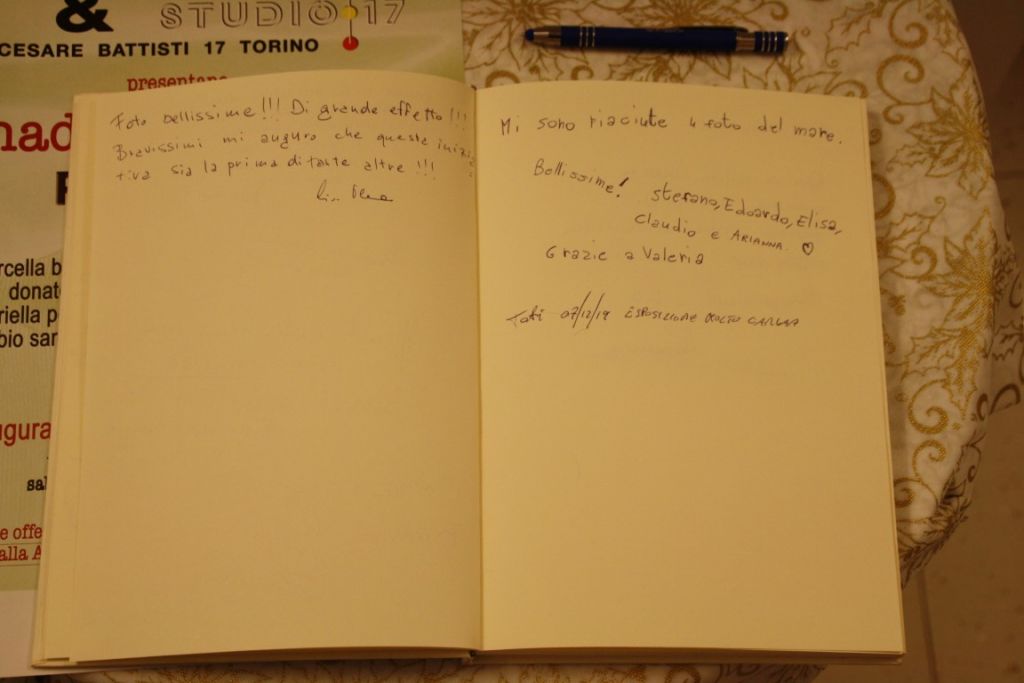 & STUDIO 17
CESARE BATTISTI 17 TORINO
presentano
nad
rcella b
donat
riella p
bio sar
ugura
sal
e offe
alla A
Foto bellissime!!! Di grande effetto!!!
Bravissimi mi auguro che questa inizia
tiva sia la prima di tante altre!!!
Mi sono riaciute 4 foto del mare.
Bellissime! Stefano, Edoardo, Elisa,
Claudio e ARIANNA. ♡
Grazie a Valeria
07/12/19 ESPOSIZIONE MOLTO CARINA